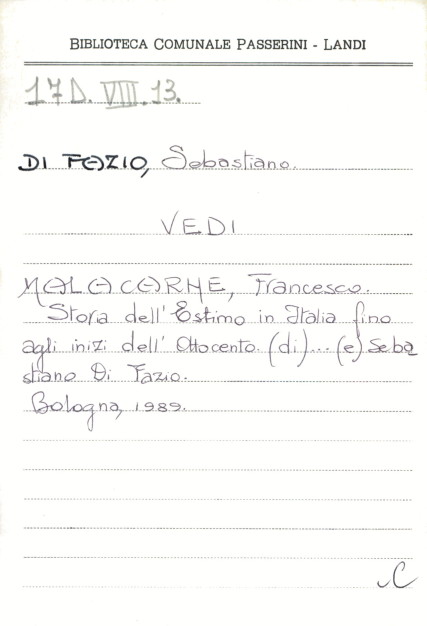 BIBLIOTECA COMUNALE PASSERINI - LANDI
17D. VIII. 13.
DI FAZIO, Sebastiano.
VEDI
MALACARNE, Francesco.
Storia dell'Estimo in Italia fino
agli inizi dell'Ottocento. (di)... (e) Seba
stiano Di Fazio.
Bologna, 1989.